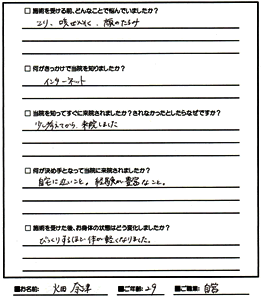 □ 施術を受ける前、どんなことで悩んでいましたか？
コリ、咳ぜんそく、顔のたるみ
□ 何がきっかけで当院を知りましたか？
インターネット
□ 当院を知ってすぐに来院されましたか？されなかったとしたらなぜですか？
少し考えてから、来院しました
□ 何が決め手となって当院に来院されましたか？
自宅に近いこと。経験が豊富なこと。
□ 施術を受けた後、お身体の状態はどう変化しましたか？
びっくりするほど体が軽くなりました。
■お名前: 火田 ■ご年齢: 29 ■ご職業: 自営